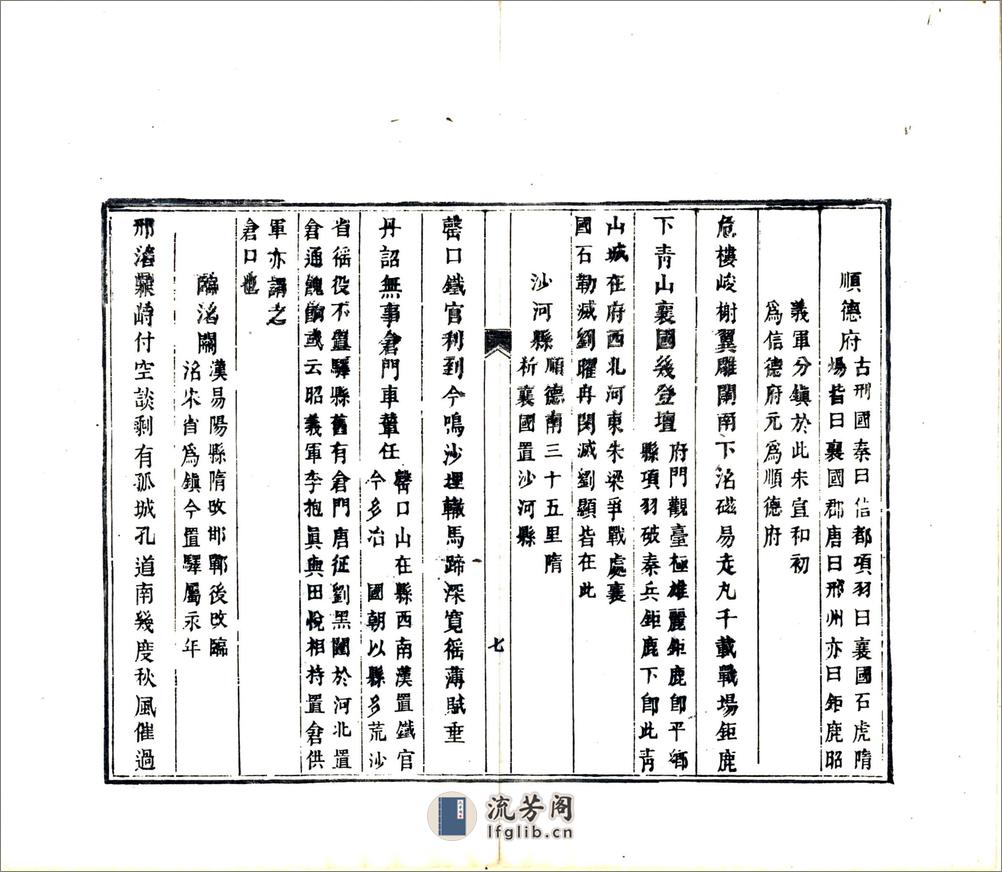 順德府
古邢國秦曰信都項羽曰襄國石虎隋
場皆曰襄國郡唐曰邢州亦曰鉅鹿昭
義軍分鎮於此朱宣和初
為信德府元為順德府
危樓峻榭翼雕闌南下洺磁易走丸千載戰場鉅鹿
下靑山襄國幾登壇
府門觀臺極雄麗鉅鹿卽平鄉
縣項羽破秦兵鉅鹿下卽此靑
山城在府西北河東朱梁爭戰處襄
國石勒滅劉曜冉閔滅劉顯皆在此
沙河縣
順德南三十五里隋
析襄國置沙河縣
七
罄口鐵官利到今鳴沙埋轍馬蹄深寬徭薄賦垂
丹詔無事倉門車輦任
罄口山在縣西南漢置鐵官
今多冶 國朝以縣多荒沙
省徭役不置驛縣舊有倉門唐征劉黑闥於河北置
倉通餽餉或云昭義軍李抱眞與田悅相持置倉供
軍亦謂之
倉口也
臨洺關
漢易陽縣隋改邯鄲後改臨
洺宋省為鎮今置驛屬永年
邢洺付空談剩有孤城孔道南幾度秋風催過
流芳阁
lfglib.cn